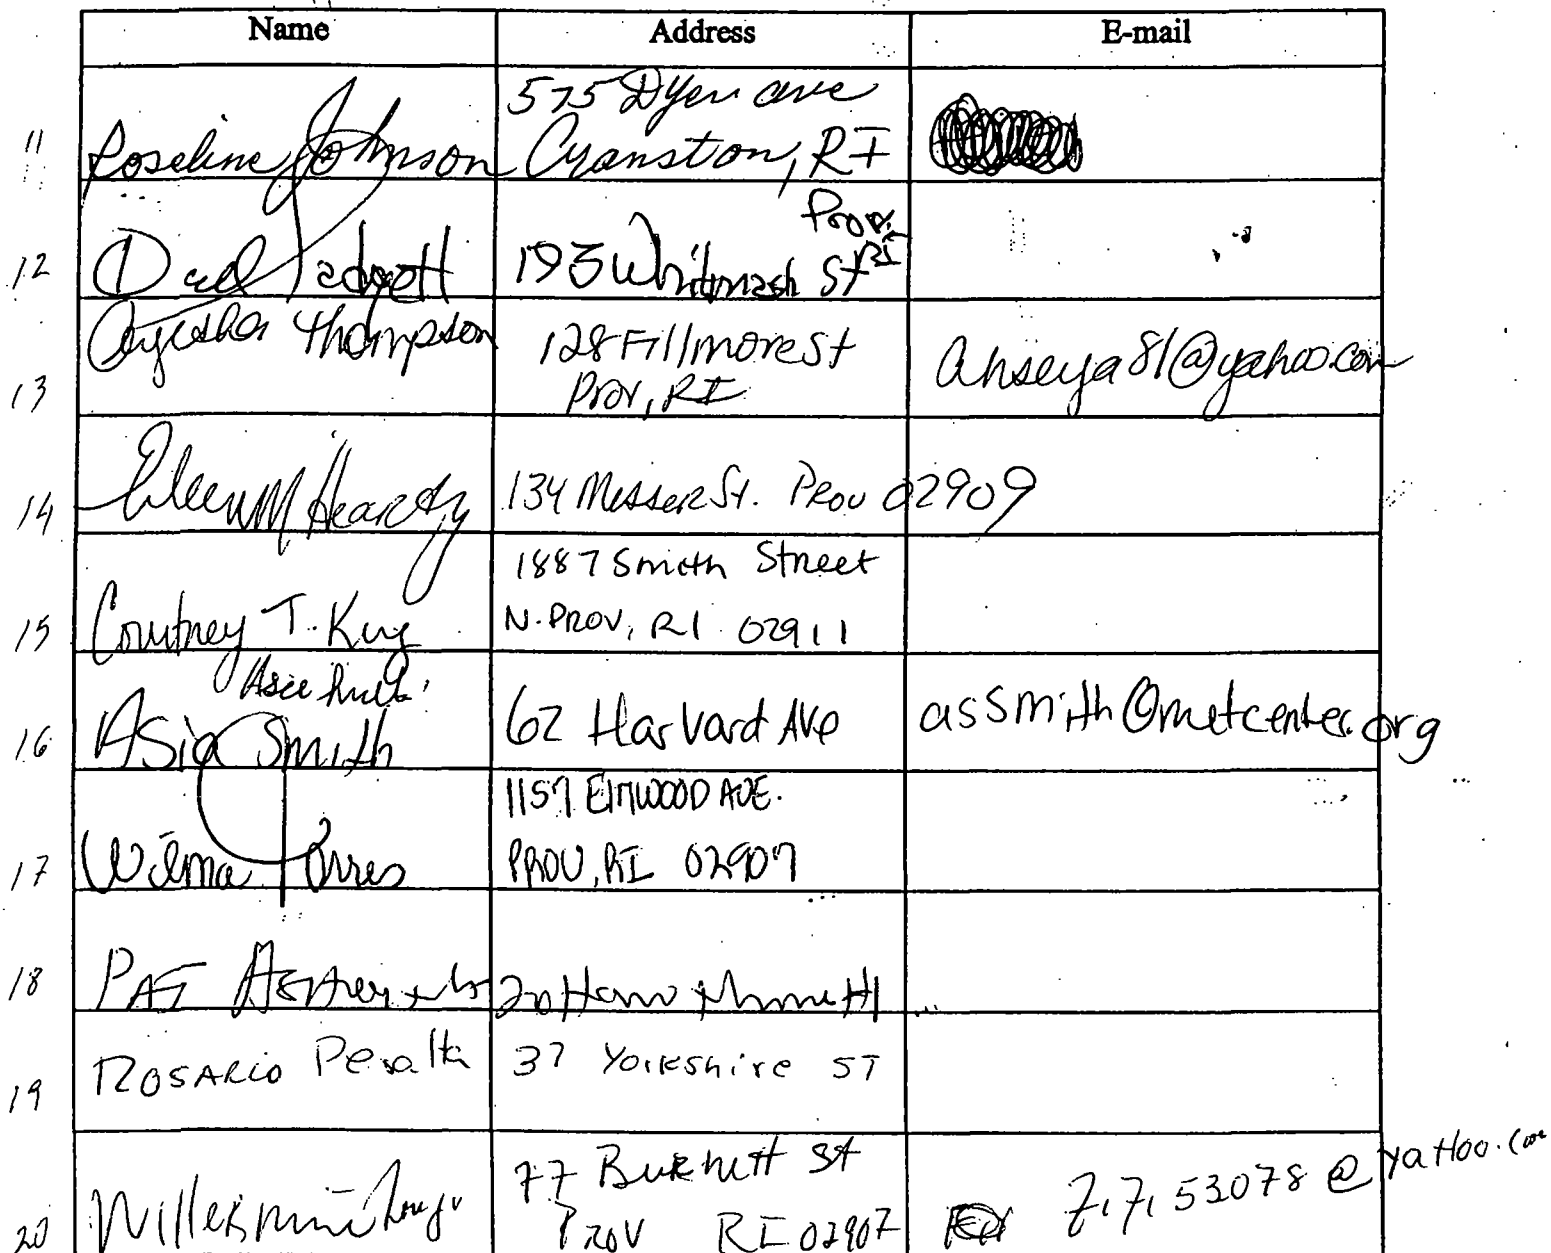 Name Address E-mail
11 Roseline Johnson 575 Dyer ave
Cranston, RI
12 Padgett 193 Whitmash St Prov. RI
13 Ayesha Thompson 128 Fillmore St
Prov, RI
ahseya81@yahoo.com
14 Eileen M Heardy 134 Messer St. Prov 02909
15 Courtney T. King 1887 Smith Street
N. PROV, RI 02911
16 Asia Smith 62 Harvard Ave assmith@metcenter.org
17 Wilma Torres 1157 ElMWOOD AVE.
PROV, RI 02907
18 PAT
19 ROSARIO Peralta 37 Yorkshire ST
20 77 Burnett St
Prov RI 02907
53078@yaHoo.com